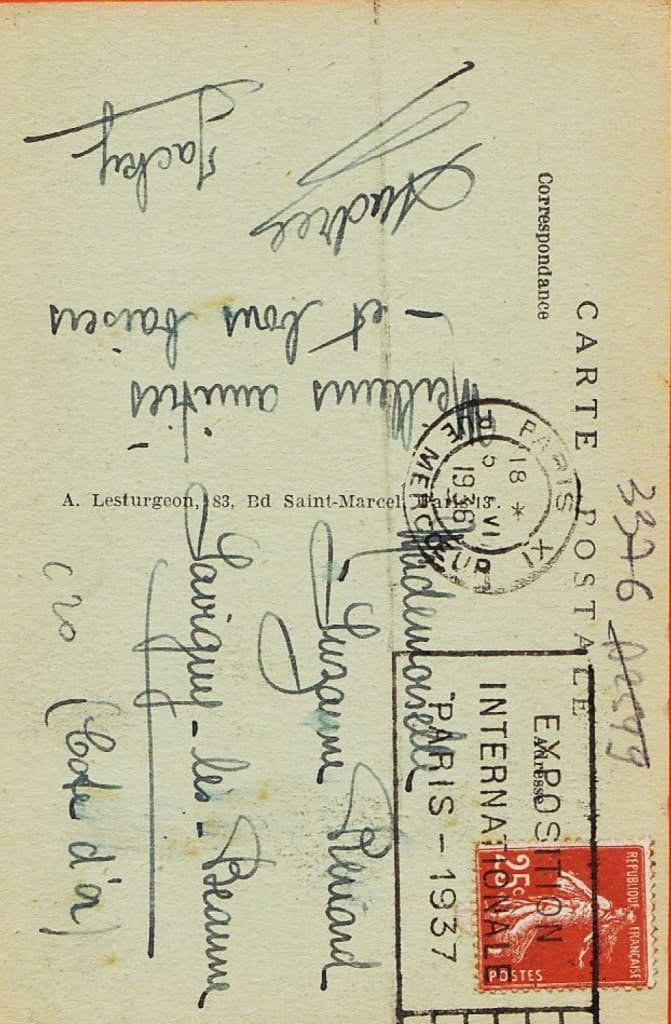 CARTE POSTALE
Correspondance
Adresse
3376
Meilleurs amitiés -
- et bons baisers
Andree
Jacky
A. Lesturgeon, 83, Bd Saint-Marcel, Paris-13e.
PARIS XI
RUE MERCŒUR
18 *
5 VI
1936
EXPOSITION
INTERNATIONALE
PARIS - 1937
REPUBLIQUE FRANÇAISE
25c
POSTES
Mademoiselle
Suzanne Renard
Savigny-les-Beaune
(Cote d'or)